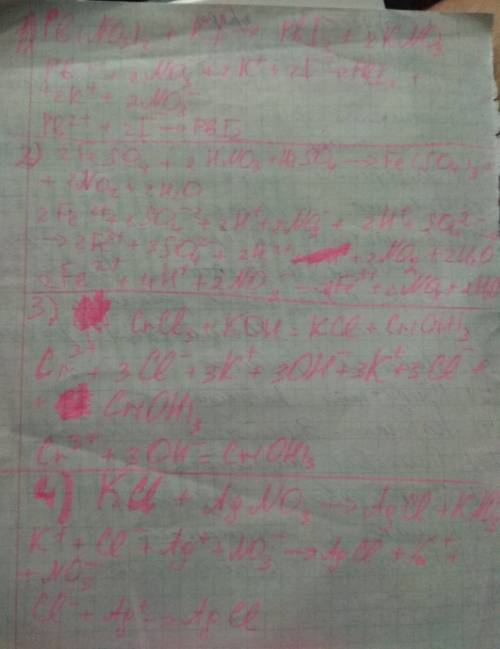 1) Pb(NO3)2 + KI → PbI2 + 2KNO3
Pb + 2NO3 + 2K+ + 2I → PbI2 +
+ 2K+ + 2NO3-
Pb2+ + 2I- → PbI2
2) 2FeSO4 + 2HNO3 + H2SO4 → Fe2(SO4)3 +
+ 2NO2 + 2H2O
2Fe2+ + SO4 2- + 2H+ + 2NO3- + 2H+ SO4 2-
→ 2Fe3+ + 3SO4 + 2NO2 + 2H2O
2Fe2+ + 4H+ + 2NO3 → 2Fe3+ + 2NO2 + 2H2O
3) CrCl3 + KOH = KCl + Cr(OH)3
Cr3+ + 3Cl- + 3K+ + 3OH- + 3K+ + 3Cl- +
+ Cr(OH)3
Cr3+ + 3OH- = Cr(OH)3
4) KCl + AgNO3 → AgCl + KNO3
K+ + Cl- + Ag+ + NO3- → AgCl + K+
+ NO3-
Cl- + Ag+ → AgCl